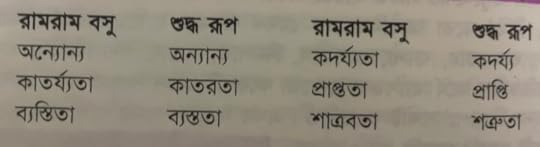 রামরাম বসু শুদ্ধ রূপ রামরাম বসু শুদ্ধ রূপ
অন্যোন্য অন্যান্য কদর্য্যতা কদর্য্য
কাতর্য্যতা কাতরতা প্রাপ্ততা প্রাপ্তি
ব্যস্তিতা ব্যস্ততা শাত্রবতা শত্রুতা